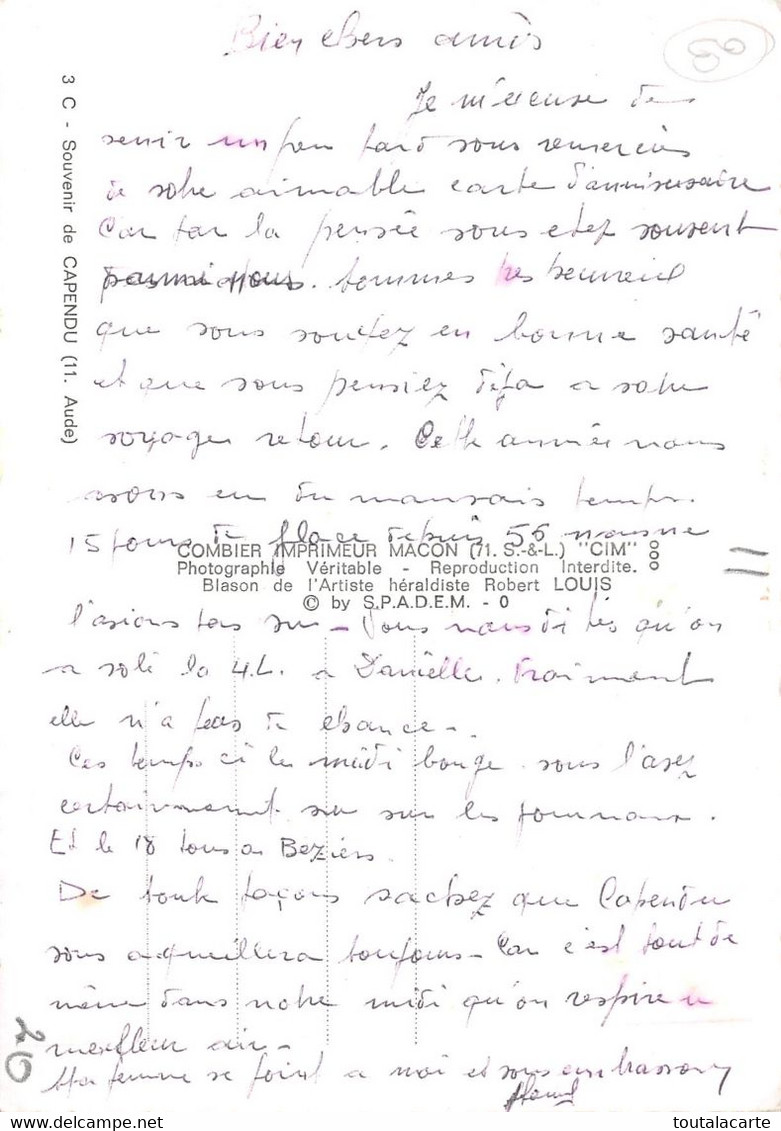 Bien chers amis
Je m'excuse de
venir un peu tard vous remercier
de votre aimable carte d'anniversaire
Car par la pensée vous etez souvent
parmi nous. sommes tres heureux
que vous soyez en bonne santé
et que vous pensiez déja a votre
voyage retour. Cette année nous
avons eu du mauvais temps.
15 jours de place depuis 56 nous ne
l'avions pas vu - Vous nous dites qu'on
a volé la 4L. a Danielle. Vraiment
elle n'a pas de chance -.
Ces temps ci le midi bouge. vous l'avez
certainement vu sur les journaux.
Et le 18 tous a Beziers.
De toute façons sachez que Capendu
vous acqueillera toujours - Car c'est tout de
même dans notre midi qu'on respire un
meilleur air -
Ma femme se joint a moi et vous embrassons
3 C - Souvenir de CAPENDU (11. Aude)
COMBIER IMPRIMEUR MACON (71. S.-&-L.) "CIM"
Photographie Véritable - Reproduction Interdite.
Blason de l'Artiste héraldiste Robert LOUIS
© by S.P.A.D.E.M. - 0
20
toutalacarte